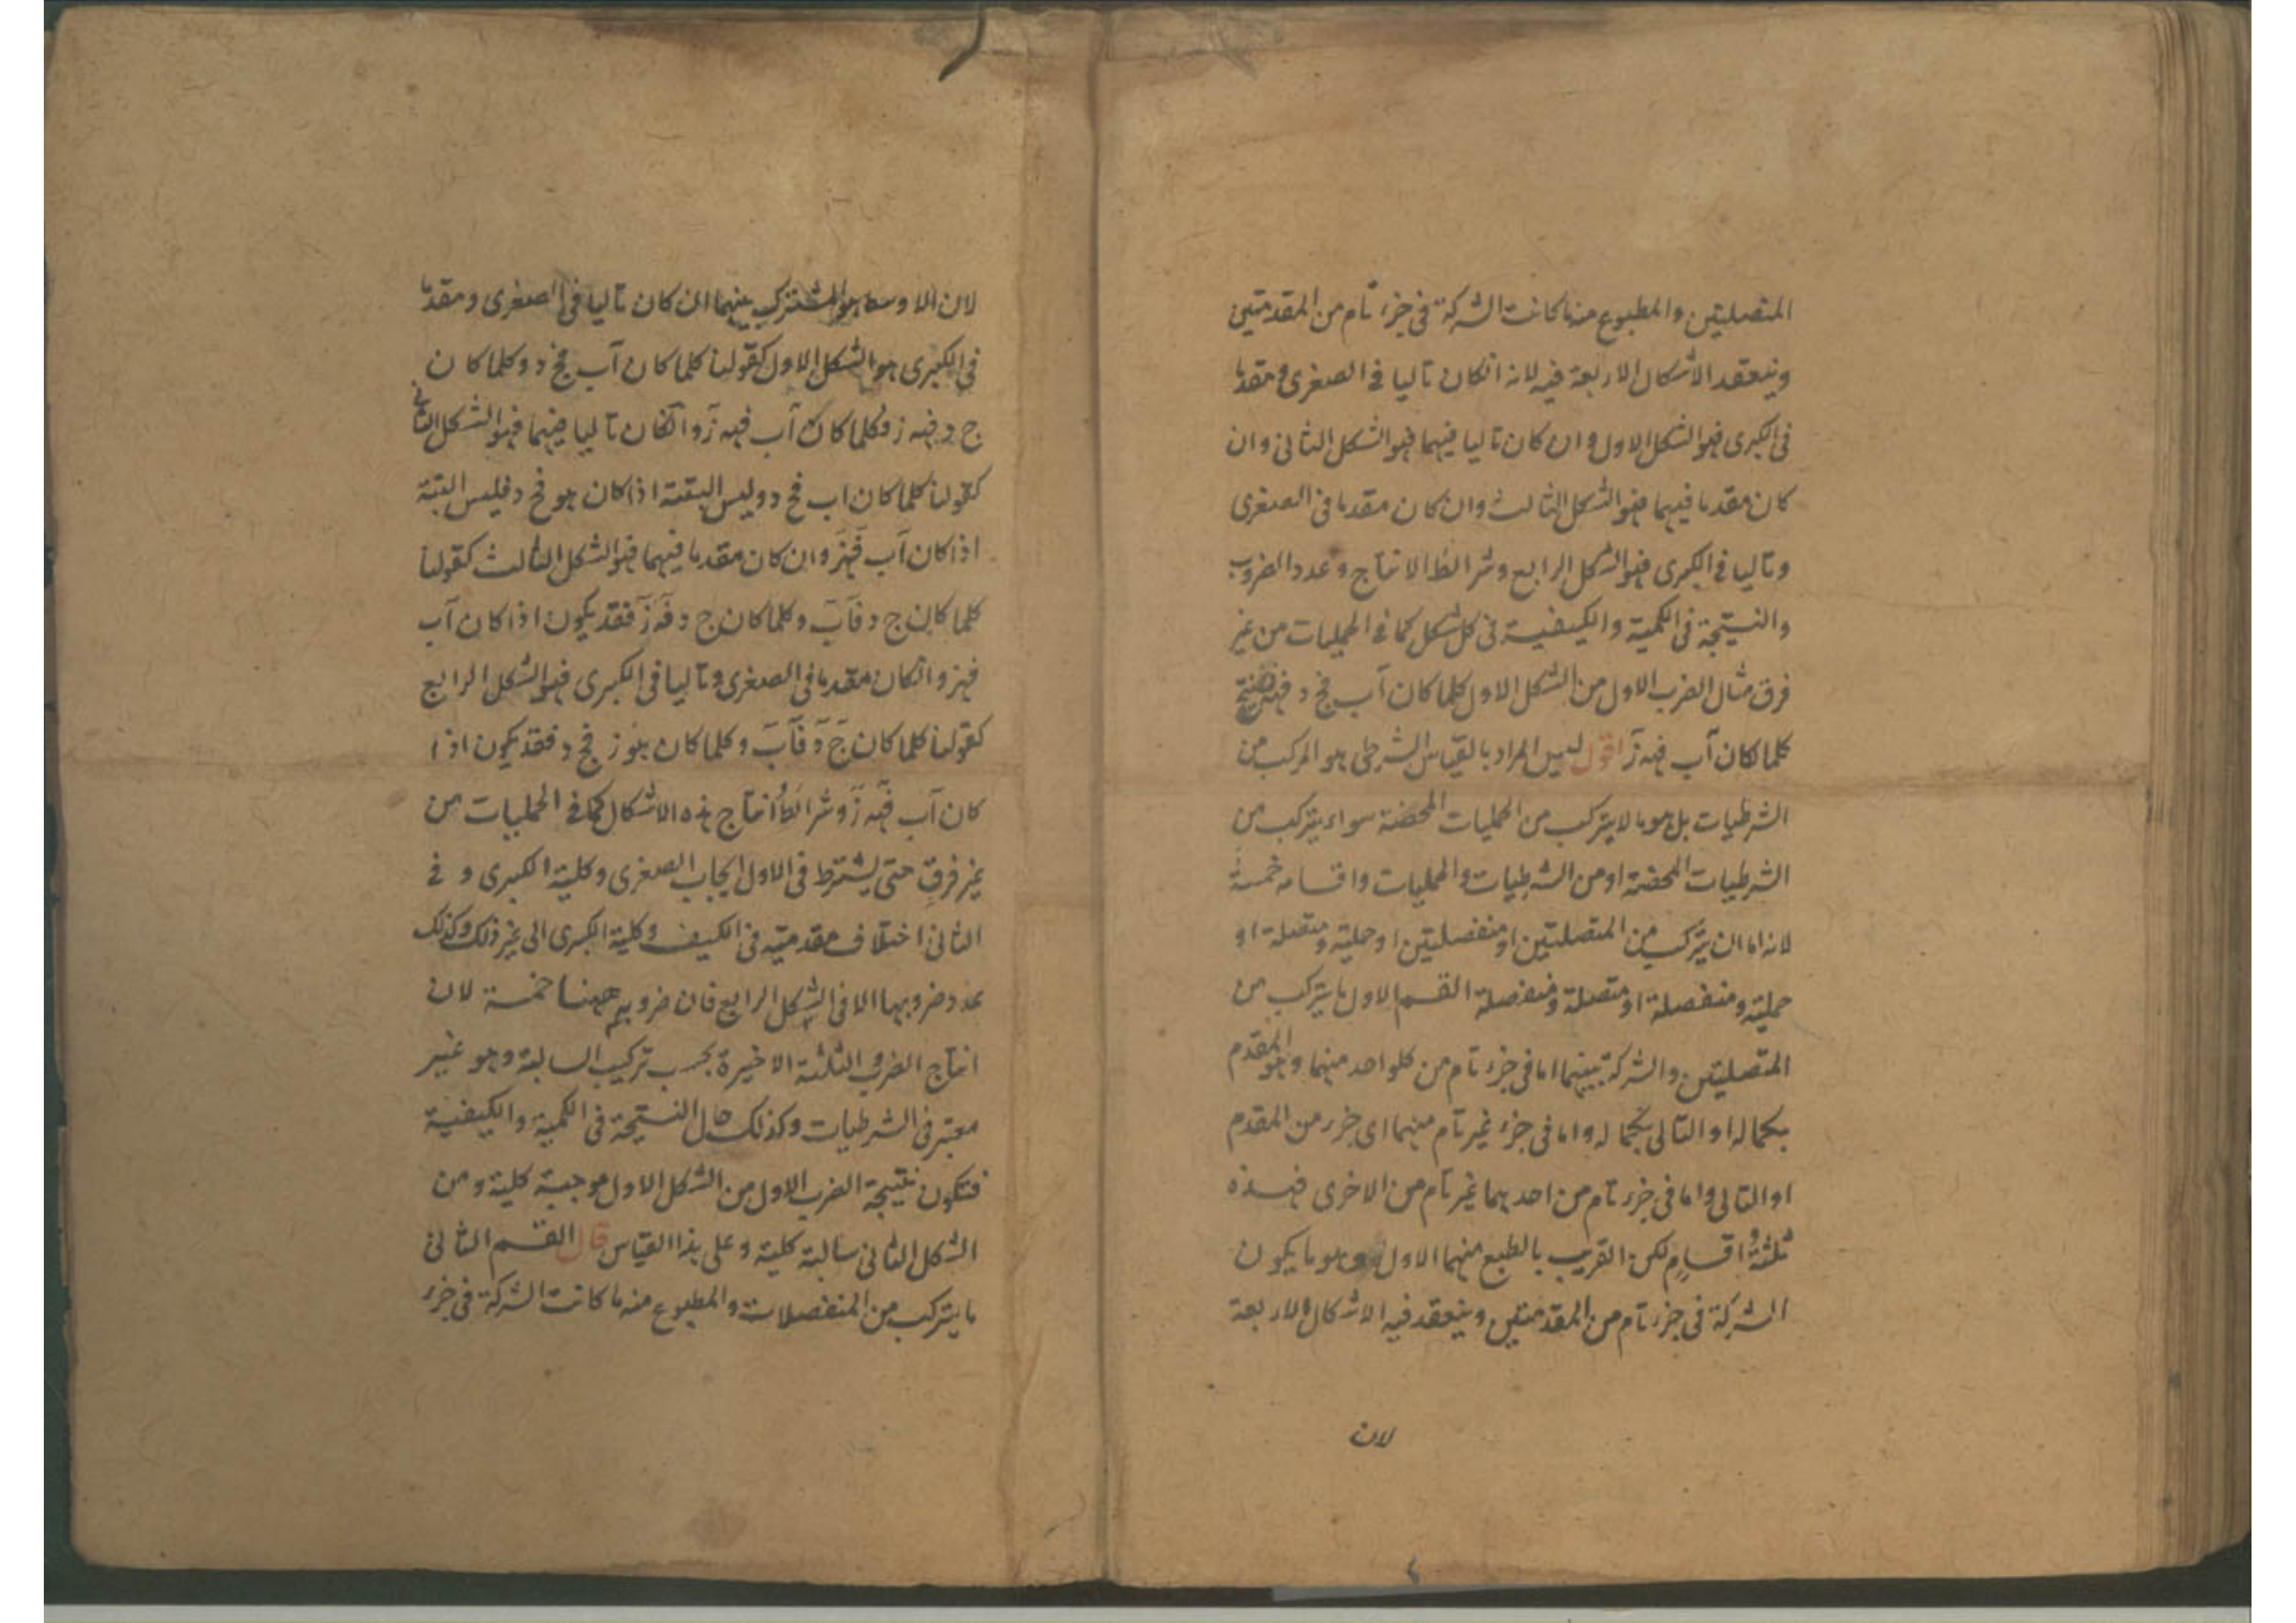 المتصلتين والمطبوع منها كانت الشركة فى جزء تام من المقدمتين
وينعقد الاشكال الاربعة فيه لانه انكان تاليا فى الصغرى ومقدما
فى الكبرى فهو الشكل الاول وان كان تاليا فيهما فهو الشكل الثانى وان
كان مقدما فيهما فهو الشكل الثالث وان كان مقدما فى الصغرى
وتاليا فى الكبرى فهو الشكل الرابع وشرائط الانتاج وعدد الضروب
والنتيجة فى الكمية والكيفية فى كل شكل كما فى الحمليات من غير
فرق مثال الضرب الاول من الشكل الاول كلما كان آب فج د
كلما كان آب فهـ ز اقول ليس المراد بالقياس الشرطى هو المركب من
الشرطيات بل هو ما لا يتركب من الحمليات المحضة سواء يتركب من
الشرطيات المحضة او من الشرطيات والحمليات واقسامه خمسة
لانه اما ان يتركب من المتصلتين او منفصلتين او حملية ومتصلة او
حملية ومنفصلة او متصلة ومنفصلة القسم الاول ما يتركب من
المتصلتين والشركة بينهما اما فى جزء تام من كلواحد منهما وهو المقدم
بكماله او التالى بكماله واما فى جزء غير تام منهما اى جزء من المقدم
او التالى واما فى جزء تام من احديهما غير تام من الاخرى فهذه
ثلثة اقسام لكن القريب بالطبع منهما الاول وهو ما يكون
الشركة فى جزء تام من المقدمتين وينعقد فيه الاشكال الاربعة
لان
لان الاوسط هو المشترك بينهما ان كان تاليا فى الصغرى ومقدما
فى الكبرى هو الشكل الاول كقولنا كلما كان آب فج د وكلما كان
ج د فهـ ز فكلما كان آب فهـ ز وانكان تاليا فيهما فهو الشكل الثانى
كقولنا كلما كان اب فج د وليس البتة اذا كان هو فج د فليس البتة
اذا كان آب فهز وان كان مقدما فيهما فهو الشكل الثالث كقولنا
كلما كان ج د فآب وكلما كان ج د فهـ ز فقد يكون اذا كان آب
فهز وانكان مقدما فى الصغرى وتاليا فى الكبرى فهو الشكل الرابع
كقولنا كلما كان ج د فآب وكلما كان هو ز فج د فقد يكون اذا
كان آب فهـ ز وشرائط انتاج هذه الاشكال كما فى الحمليات من
غير فرق حتى يشترط فى الاول ايجاب الصغرى وكلية الكبرى و فى
الثانى اختلاف مقدمتيه فى الكيف وكلية الكبرى الى غير ذلك وكذلك
عدد ضروبها الا فى الشكل الرابع فان ضروبه ههنا خمسة لان
انتاج الضروب الثلثة الاخيرة بحسب تركيب السالبة وهو غير
معتبر فى الشرطيات وكذلك حال النتيجة فى الكمية والكيفية
فتكون نتيجة الضرب الاول من الشكل الاول موجبة كلية ومن
الشكل الثانى سالبة كلية وعلى هذا القياس قال القسم الثانى
ما يتركب من المنفصلات والمطبوع منه ما كانت الشركة فى جزء